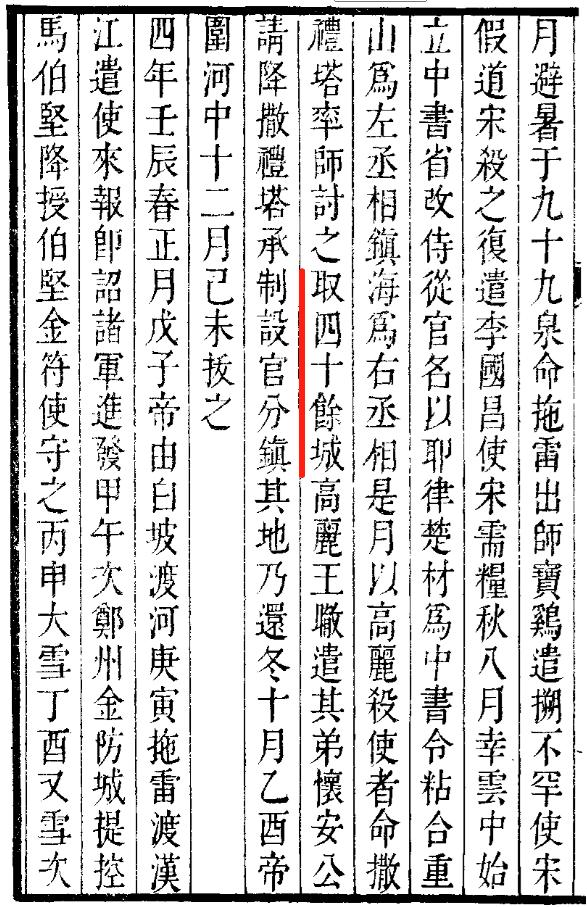 月避暑于九十九泉命拖雷出師寶鷄遣搠不罕使宋
假道宋殺之復遣李國昌使宋需糧秋八月幸雲中始
立中書省改侍從官名以耶律楚材爲中書令粘合重
山爲左丞相鎮海爲右丞相是月以高麗殺使者命撒
禮塔率師討之取四十餘城高麗王㬚遣其弟懷安公
請降撒禮塔承制設官分鎮其地乃還冬十月乙酉帝
圍河中十二月己未拔之
四年壬辰春正月戊子帝由白坡渡河庚寅拖雷渡漢
江遣使來報卽詔諸軍進發甲午次鄭州金防城提控
馬伯堅降授伯堅金符使守之丙申大雪丁酉又雪次